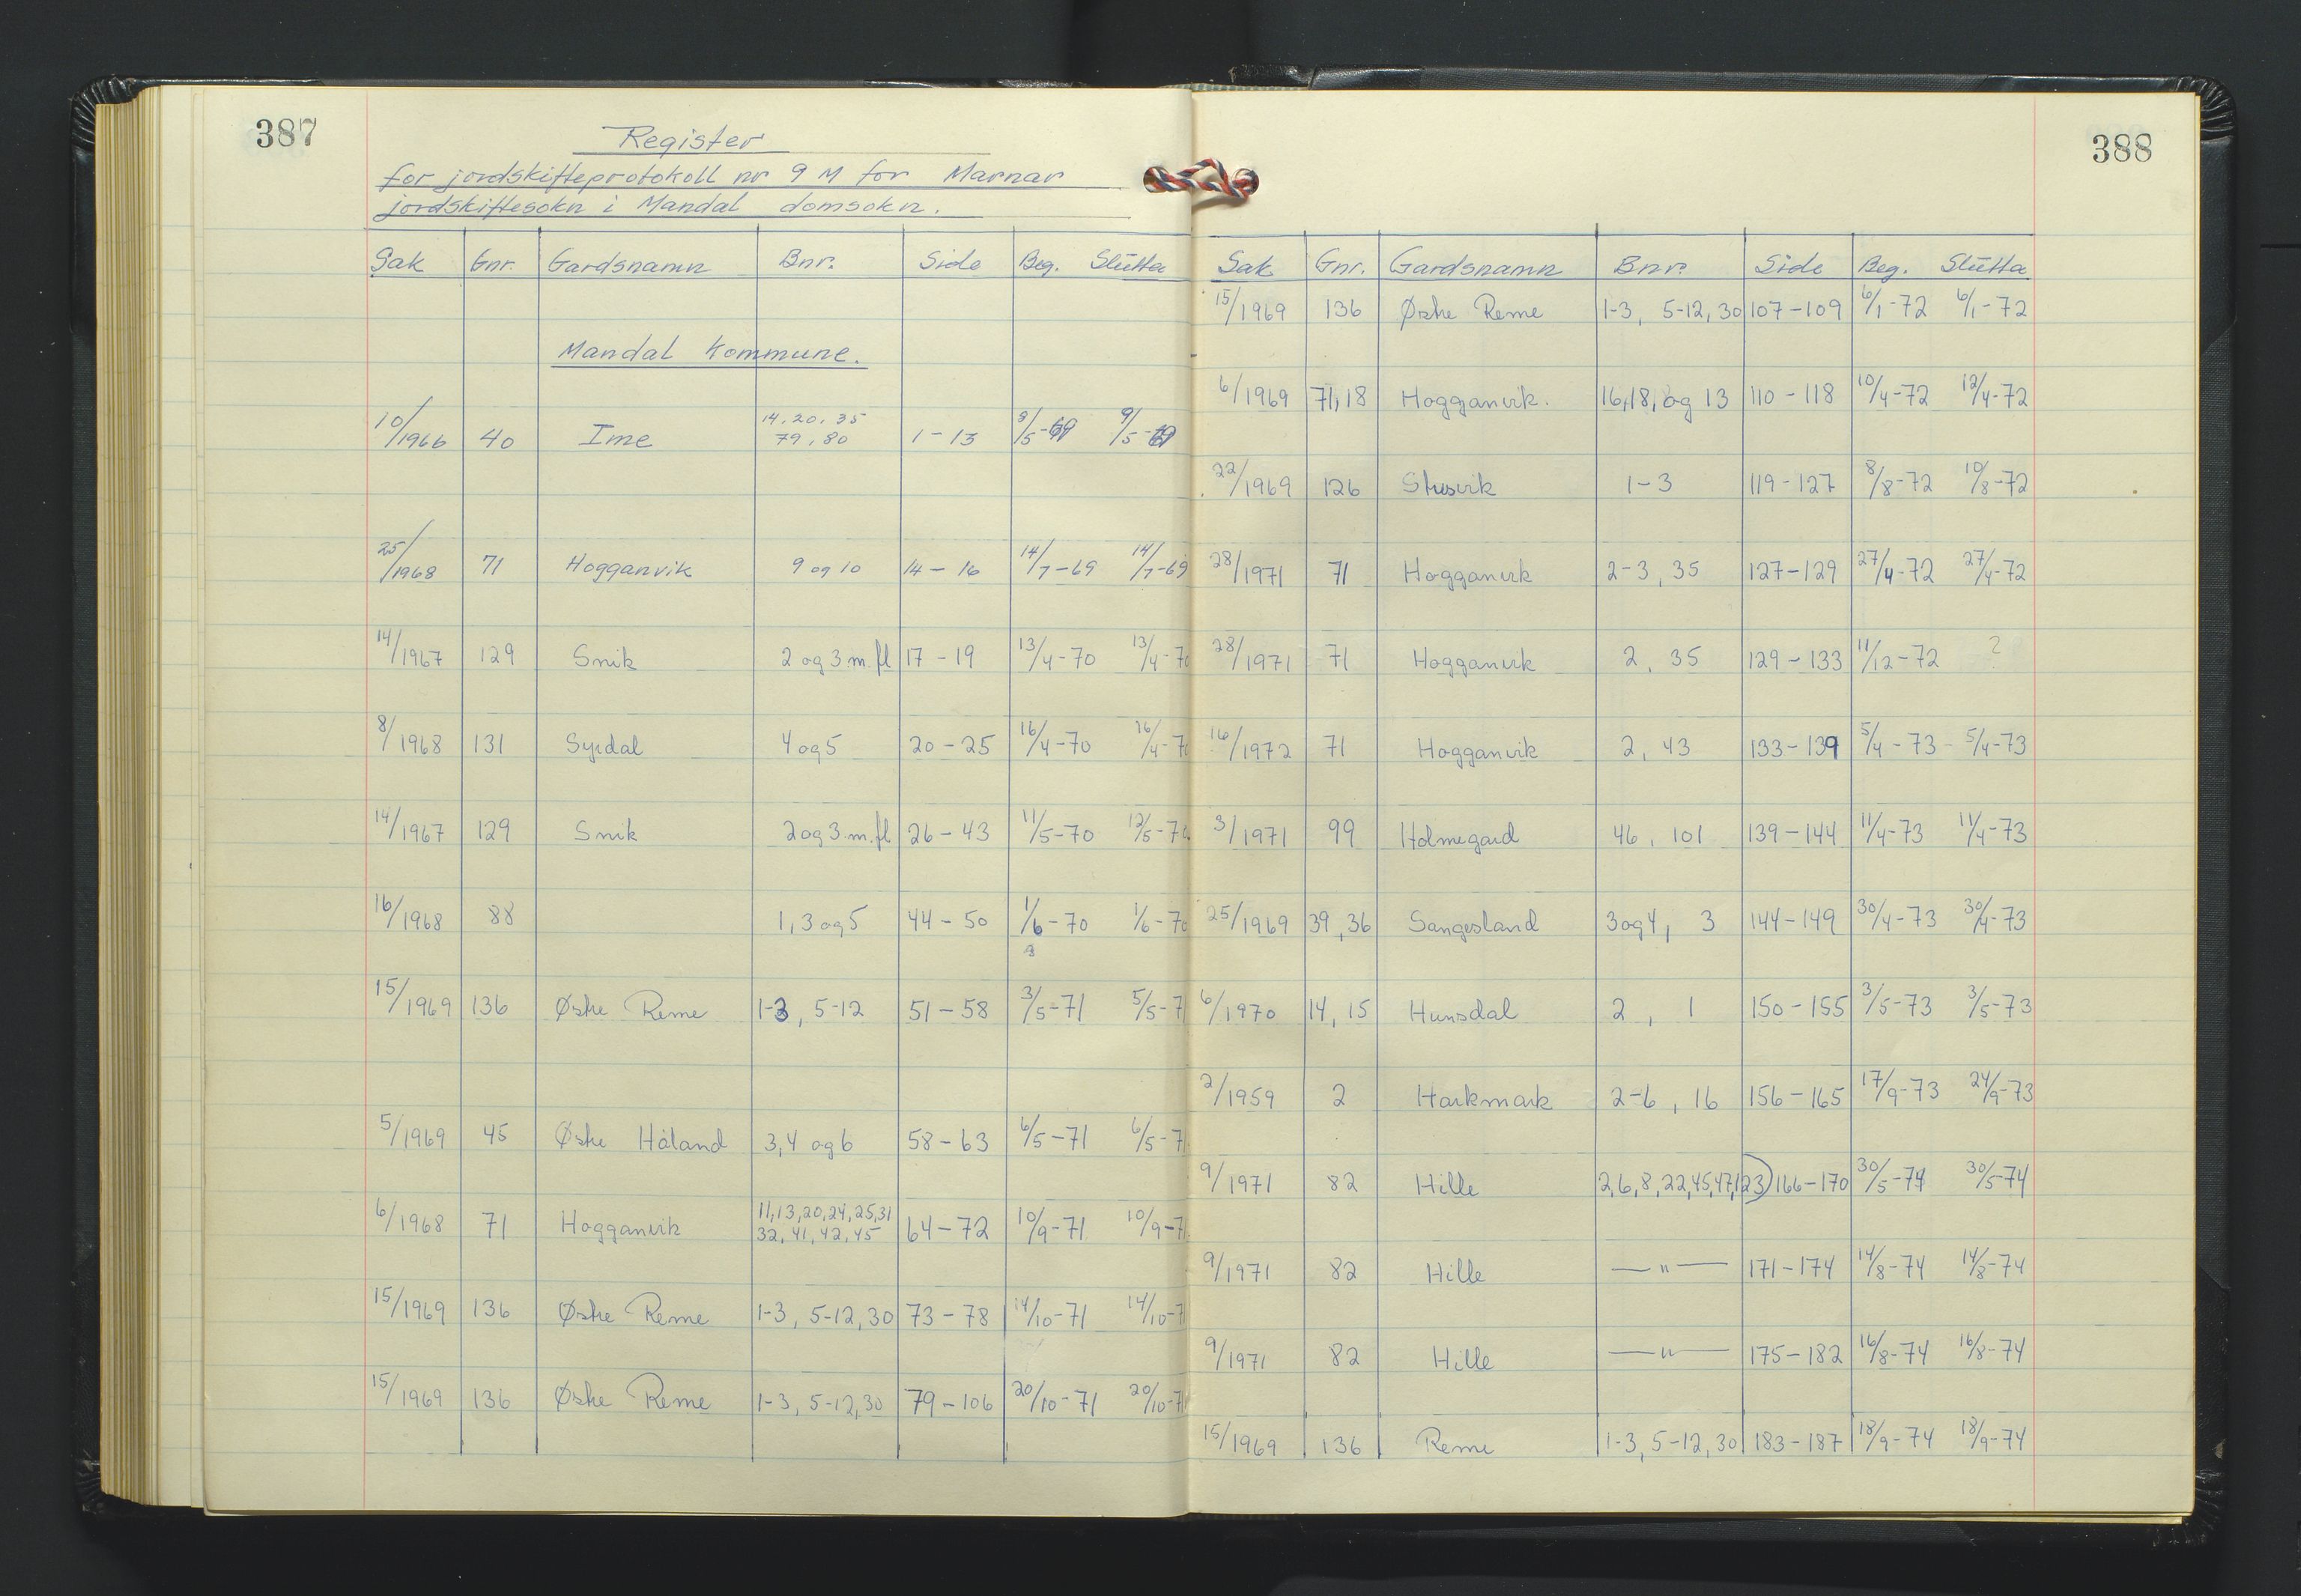 387
Register
for jordskifteprotokoll nr 9 M for Marnar
jordskiftesokn i Mandal domsokn.
Sak Gnr. Gardsnamn Bnr. Side Beg. Slutta
Mandal Kommune.
14, 20, 35
10/1966 40 Ime 79, 80 1 - 13 8/5-69 9/5-69
25/1968 71 Hogganvik 9 og 10 14 - 16 14/7-69 14/7-69
14/1967 129 Snik 2 og 3 m.fl 17 - 19 13/4-70 13/4-70
8/1968 131 Syrdal 4 og 5 20 - 25 16/4-70 16/4-70
14/1967 129 Snik 2 og 3 m.fl 26 - 43 11/5-70 12/5-70
16/1968 88 1, 3 og 5 44 - 50 1/6-70 1/6-70
15/1969 136 Østre Reme 1-3, 5-12 51 - 58 3/5-71 5/5-71
5/1969 45 Østre Håland 3, 4 og 6 58 - 63 6/5-71 6/5-71
11, 13, 20, 24, 25, 31
6/1968 71 Hogganvik 32, 41, 42, 45 64 - 72 10/9-71 10/9-71
15/1969 136 Østre Reme 1-3, 5-12, 30 73 - 78 14/10-71 14/10-71
15/1969 136 Østre Reme 1-3, 5-12, 30 79 - 106 20/10-71 20/10-71
388
Sak Gnr. Gardsnamn Bnr. Side Beg. Slutta
15/1969 136 Østre Reme 1-3, 5-12, 30 107 - 109 6/1-72 6/1-72
6/1969 71, 18 Hogganvik. 16, 18, og 13 110 - 118 10/4-72 12/4-72
22/1969 126 Stusvik 1 - 3 119 - 127 8/8-72 10/8-72
28/1971 71 Hogganvik 2-3, 35 127 - 129 27/4-72 27/4-72
28/1971 71 Hogganvik 2, 35 129 - 133 11/12-72 ?
16/1972 71 Hogganvik 2, 43 133 - 139 5/4-73 - 5/4-73
3/1971 99 Holmegard 46, 101 139 - 144 11/4-73 11/4-73
25/1969 39, 36 Sangesland 3 og 4, 3 144 - 149 30/4-73 30/4-73
6/1970 14, 15 Hunsdal 2, 1 150 - 155 3/5-73 3/5-73
2/1959 2 Harkmark 2-6, 16 156 - 165 17/9-73 24/9-73
9/1971 82 Hille 2, 6, 8, 22, 45, 47, 123) 166 - 170 30/5-74 30/5-74
9/1971 82 Hille —"— 171 - 174 14/8-74 14/8-74
9/1971 82 Hille —"— 175 - 182 16/8-74 16/8-74
15/1969 136 Reme 1-3, 5-12, 30 183 - 187 18/9-74 18/9-74